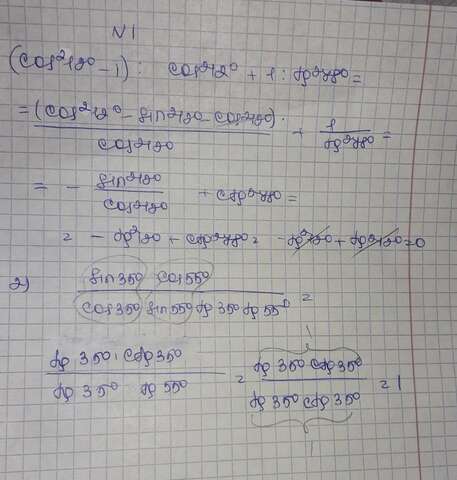 N1
(cos²42° - 1) : cos²42° + 1 : tg²48° =
= (cos²42° - sin²42° - cos²42°) / cos²42° + 1 / tg²48° =
= - sin²42° / cos²42° + ctg²48° =
= - tg²42° + ctg²48° = - tg²42° + tg²42° = 0
2) sin35° cos55° / cos35° sin55° tg35° tg55° =
tg 35° · ctg 35° / tg 35° tg 55° = tg 35° ctg 35° / tg 35° ctg 35° = 1